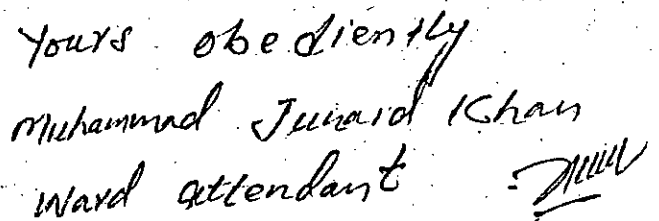 Yours obediently
Muhammad Junaid Khan
Ward attendant